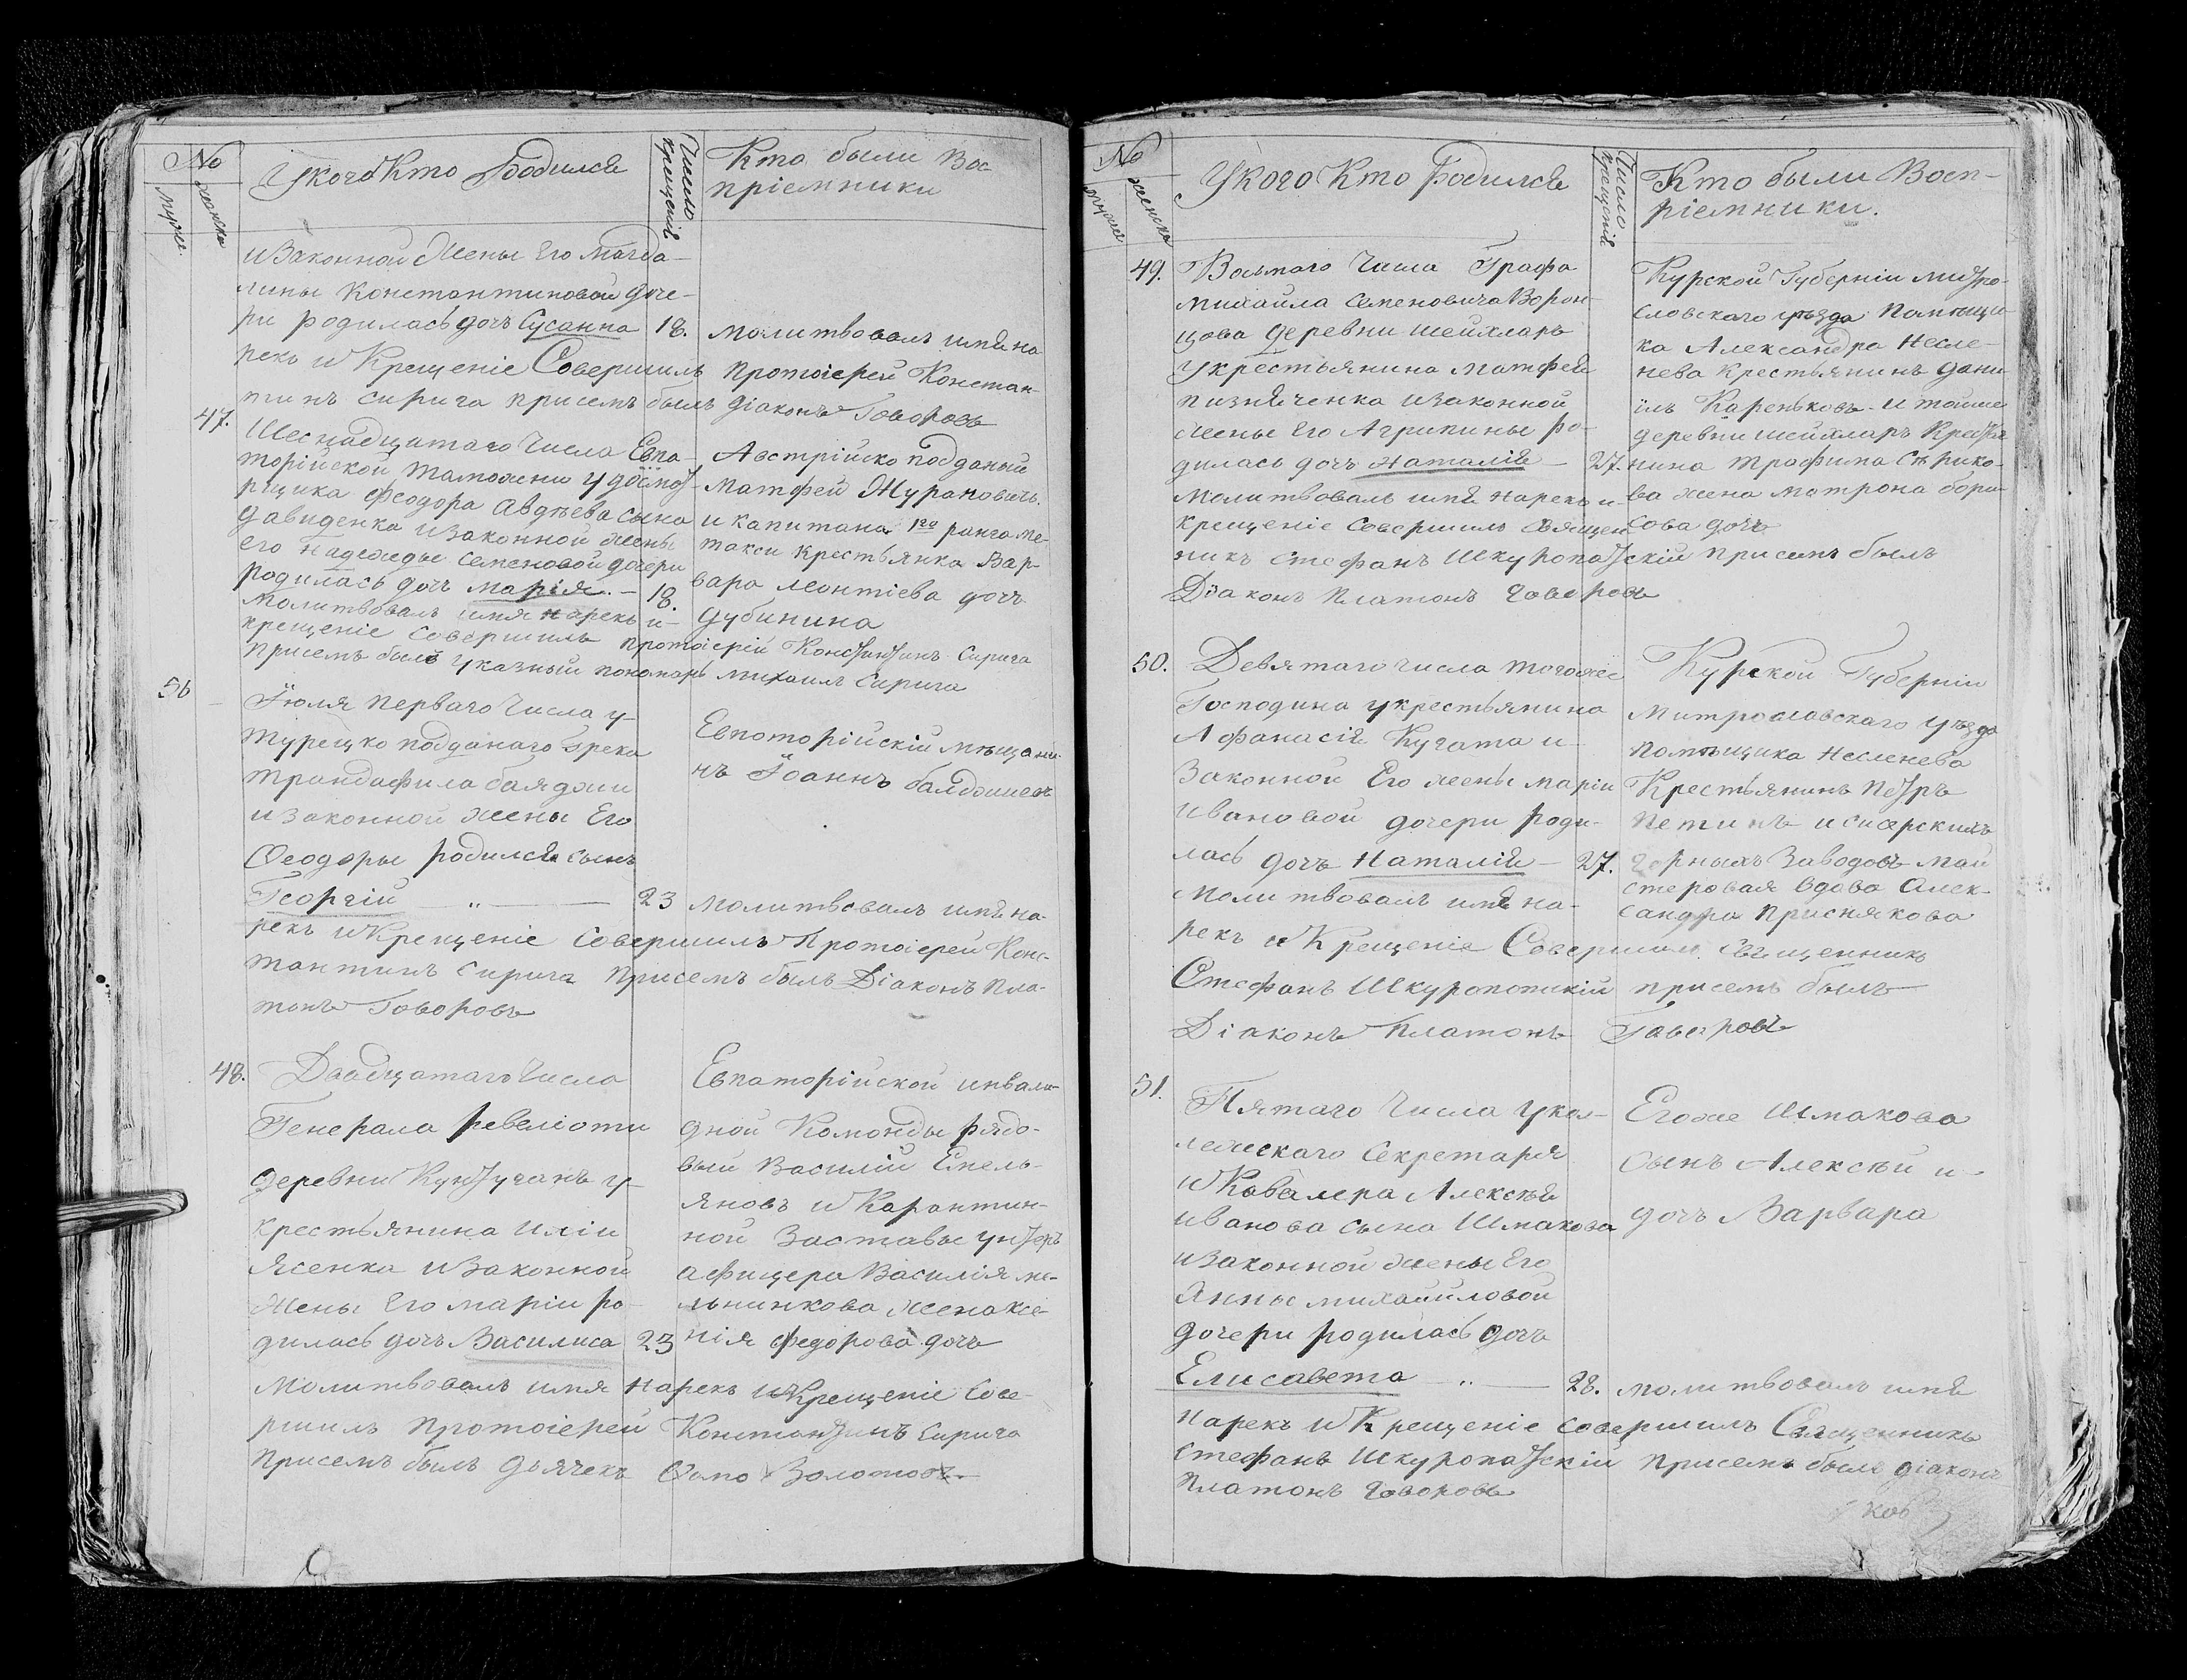 No
мужск.
женска
У кого Кто Родился
Число крещенія
Кто были Вос
пріемники
и Законной Жены Его Магда-
лины Константиновой доче-
ри родилась дочь Сусанна 18. молитвовалъ имя на
рекъ и Крещеніе Совершилъ Протоіерей Констан-
тинъ Сирига присемъ былъ діаконъ Говоровъ
47.
Шеснадцатаго Числа Евпа-
торійской таможни у досмот-
рщика Феодора Авдѣева сына
Давиденка и Законной жены
его Надежды Семеновой дочери
родилась дочь Марія. — 18.
Австрійско подданый
Матфей Журановичь
и капитана 1го ранга Ме-
такси крестьянка Вар-
вара Леонтіева дочь
Дубинина
Молитвовалъ имя нарекъ и
крещеніе совершилъ протоіерей Константинъ Сирига
присемъ былъ указный пономарь Михаилъ Сирига
56
Іюля перваго Числа у
турецко подданаго Грека
Трандафила Баяджи
и законной жены Его
Феодоры родился сынъ
Георгій — „ — 23
Евпоторійскій мѣщани-
нъ Іоаннъ
молитвовалъ имя на-
рекъ и Крещеніе совершилъ Протоіерей Конс-
тантинъ Сирига присемъ былъ Діаконъ Пла-
тонъ Говоровъ
48.
Двадцатаго Числа
Генерала Ревеліоти
деревни Кунтуганъ у
крестьянина Иліи
Ясенка и Законной
Жены Его Маріи ро
дилась дочь Василиса 23
Евпаторійской инвали-
дной Команды рядо-
вый Василій Емель-
яновъ и Карантин-
ной Заставы унтеръ
афицера Василія ме-
льникова жена Ксе-
нія Федорова дочь
Молитвовалъ имя нарекъ и Крещеніе Сове-
ршилъ Протоіерей Константинъ Сирига
Присемъ былъ дьячекъ Фома Золотовъ
No
мужск
женска
У Кого Кто Родился
Число крещенія
Кто были Восп-
ріемники.
49.
Восьмаго Числа Графа
Михаила Семеновича Ворон-
цова деревни Шейхларъ
у крестьянина Матфея
Пизняченка и законной
жены Его Агрипины ро-
дилась дочь Наталія — 27.
Курской Губерніи Митро-
словскаго уѣзда Помѣщи-
ка Александра Несле-
нева крестьянинъ Дани
илъ Кареньковъ и тойже
деревни Шейхларъ Кресть
нина Трофима Сѣрико-
ва жена Матрона Бори-
сова дочь
Молитвовалъ имя нарекъ и
крещеніе совершилъ Священ
никъ Стефанъ Шкуропатскій присемъ былъ
Діаконъ Платонъ Говоровъ
50.
Девятаго числа тогоже
Господина у крестьянина
Афанасія Кугата и
Законной Его жены Маріи
Ивановой дочери роди-
лась дочь Наталія — 27.
Курской Губерніи
Митрославскаго уѣзда
помѣщика Несленева
Крестьянинъ Петръ
Петинъ и сисерскихъ
горныхъ Заводовъ май
стеровая вдова Алек-
сандра Приснякова
Молитвовалъ имя на-
рекъ и Крещеніе Совершил. Священникъ
Стефанъ Шкуропатскій присемъ былъ
Діаконъ Платонъ Говоровъ
51.
Пятаго Числа у кол-
лежскаго Секретаря
и Кавалера Алексѣя
Иванова сына Шмакова
и Законной жены Его
Анны Михайловой
дочери родилась дочь
Елисавета — „ — 28.
Егоже Шмакова
Сынъ Алексѣй и
дочь Варвара
молитвовалъ имя
нарекъ и Крещеніе совершилъ Священникъ
Стефанъ Шкуропатскій присемъ былъ діаконъ
Платонъ Говоровъ